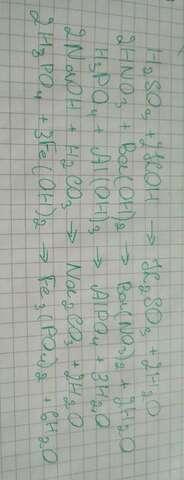 H₂SO₃ + 2KOH → K₂SO₃ + 2H₂O
2HNO₃ + Ba(OH)₂ → Ba(NO₃)₂ + 2H₂O
H₃PO₄ + Al(OH)₃ → AlPO₄ + 3H₂O
2NaOH + H₂CO₃ → Na₂CO₃ + 2H₂O
2H₃PO₄ + 3Fe(OH)₂ → Fe₃(PO₄)₂ + 6H₂O